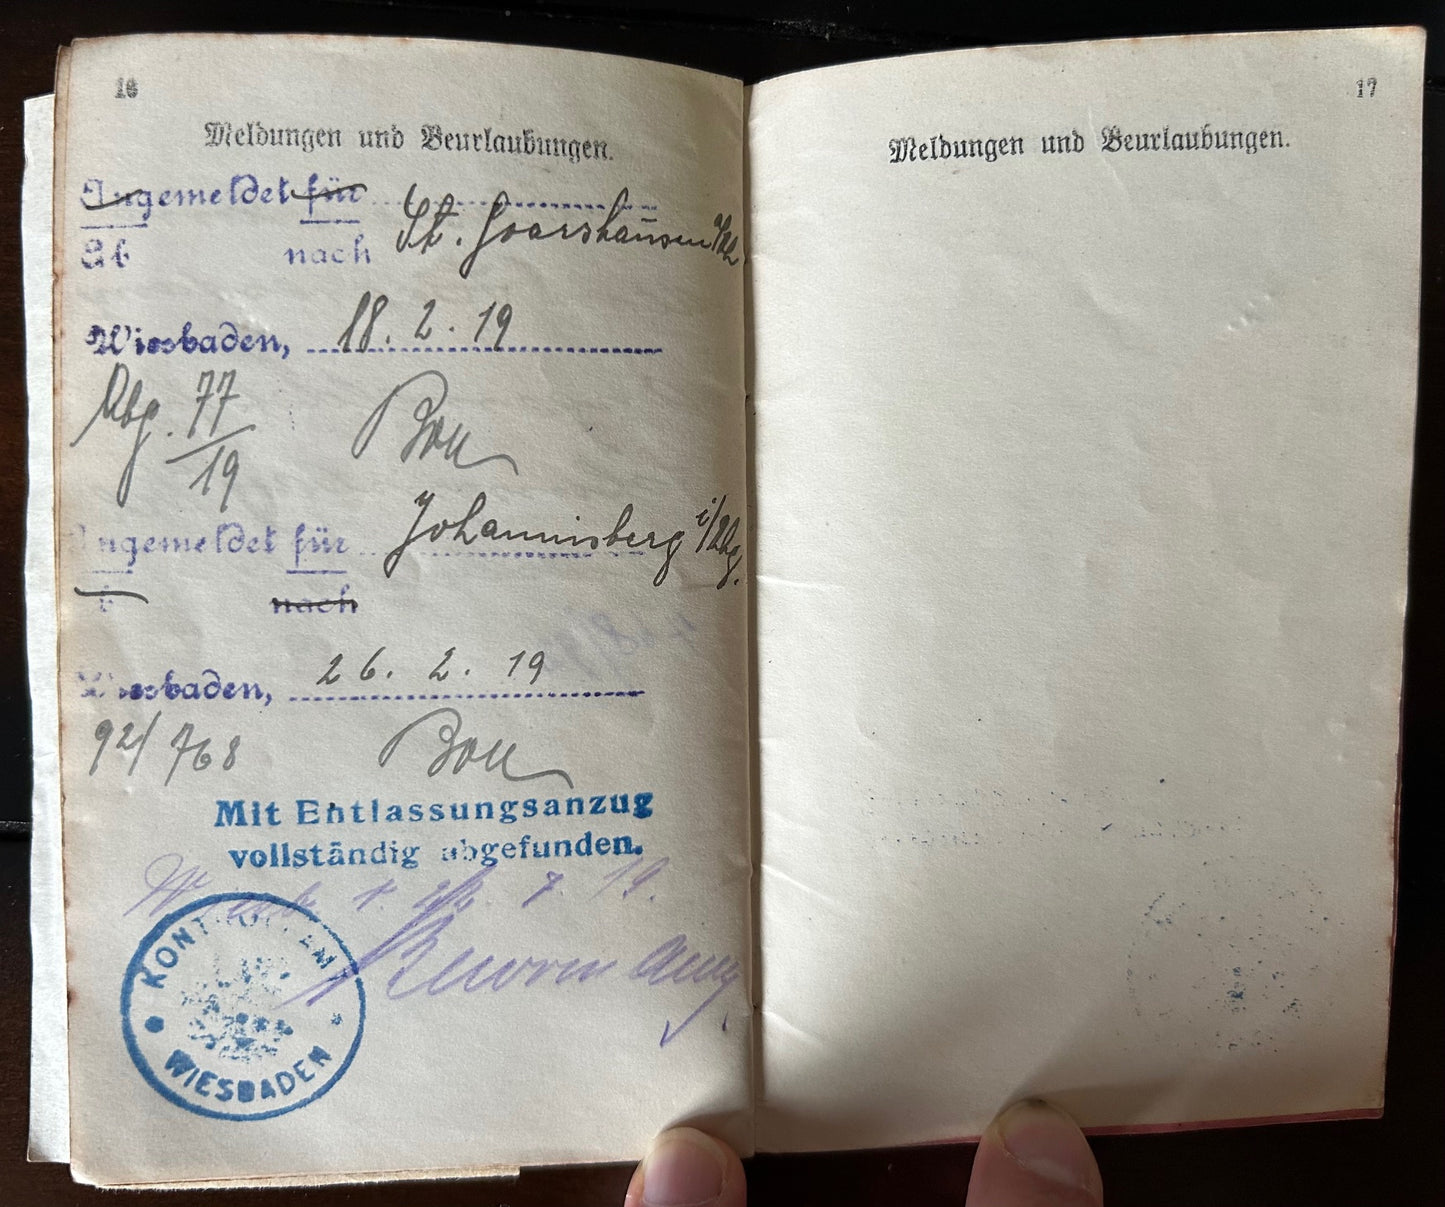 16
Meldungen und Beurlaubungen.
Angemeldet für
Ab nach St. Goarshausen a/Rh
Wiesbaden, 18. 2. 19
Abg. 77/19
Angemeldet für Johannisberg i/Rhg.
Ab nach
Wiesbaden, 26. 2. 19
92/768
Mit Entlassungsanzug
vollständig abgefunden.
7. 19.
KONTROLLAMT
WIESBADEN
17
Meldungen und Beurlaubungen.